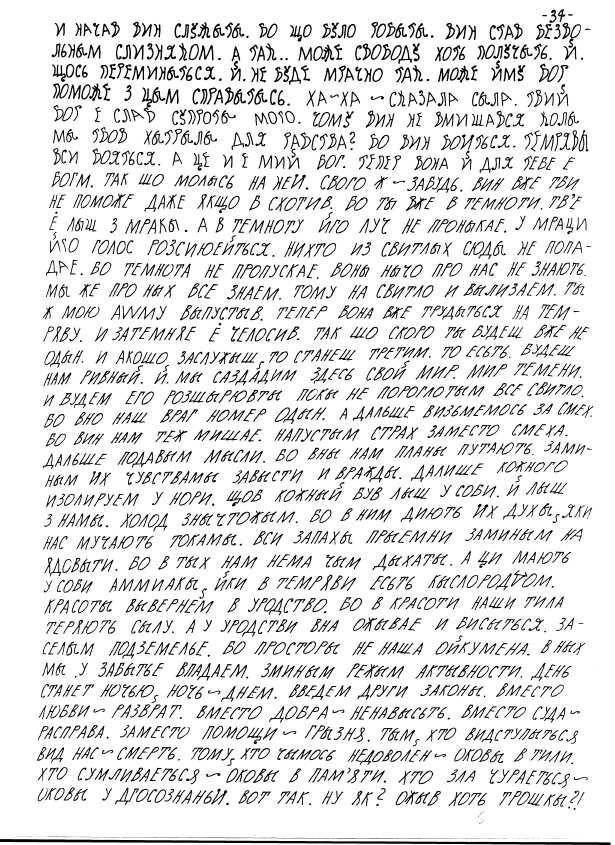 -34-
И НАЧАВ ВИН СЛУЖЫТЫ. БО ЩО БУЛО РОБЫТЫ. ВИН СТАВ БЕЗВО-
ЛЬНЫМ СЛИЗНЯКОМ. А ТАК.. МОЖЕ СВОБОДУ ХОТЬ ПОЛУЧЫТЬ. Й.
ЩОСЬ ПЕРЕМИНЫТЬСЯ. Й. НЕ БУДЕ МРАЧНО ТАК. МОЖЕ ЙМУ БОГ
ПОМОЖЕ З ЦЫМ СПРАВЫТЫСЬ. ХА~ХА ~ СКАЗАЛА СЫЛА. ТВИЙ
БОГ Е СЛАБ СУПРОТЫ МОГО. ЧОМУ ВИН НЕ ВМИШАВСЯ КОЛЫ
МЫ ТВОВ ХЫТРЫЛЫ ДЛЯ РАБСТВА? БО ВИН БОИТЬСЯ. ТЕМРЯВЫ
ВСИ БОЯТЬСЯ. А ЦЕ И Е МИЙ БОГ. ТЕПЕР ВОНА Й ДЛЯ ТЕБЕ Е
БОГМ. ТАК ШО МОЛЫСЬ НА НЕЙ. СВОГО Ж ~ ЗАБУДЬ. ВИН ВЖЕ ТБИ
НЕ ПОМОЖЕ ДАЖЕ ЯКЩО Б СХОТИВ. БО ТЫ ВЖЕ В ТЕМНОТИ. ТВ'Е
Е ЛЫШ З МРАКЫ. А В ТЕМНОТУ ЙГО ЛУЧ НЕ ПРОНЫКАЕ. У МРАЦИ
ЙГО ГОЛОС РОЗСИЮЕЙТЬСЯ. НИХТО ИЗ СВИТЛЫХ СЮДЫ НЕ ПОПА-
ДАЕ. БО ТЕМНОТА НЕ ПРОПУСКАЕ. ВОНЫ НЫЧО ПРО НАС НЕ ЗНАЮТЬ.
МЫ ЖЕ ПРО НЫХ ВСЕ ЗНАЕМ. ТОМУ НА СВИТЛО И ВЫЛИЗАЕМ. ТЫ
Ж МОЮ ВЫПУСТЫВ. ТЕПЕР ВОНА ВЖЕ ТРУДЫТЬСЯ НА ТЕМ-
РЯВУ. И ЗАТЕМНЯЕ Е ЧЕЛОСИВ. ТАК ШО СКОРО ТЫ БУДЕШ ВЖЕ НЕ
ОДЫН. И АКОЩО ЗАСЛУЖЫШ, ТО СТАНЕШ ТРЕТИМ. ТО ЕСЬТЬ. БУДЕШ
НАМ РИВНЫЙ. Й МЫ САЗДАДИМ ЗДЕСЬ СВОЙ МИР. МИР ТЕМЕНИ.
И БУДЕМ ЕГО РОЗШЫРЮВТЫ ПОКЫ НЕ ПОРОГЛОТЫМ ВСЕ СВИТЛО.
БО ВНО НАШ ВРАГ НОМЕР ОДЫН. А ДАЛЬШЕ ВИЗЬМЕМОСЬ ЗА СМЕХ.
БО ВИН НАМ ТЕЖ МИШАЕ. НАПУСТЫМ СТРАХ ЗАМЕСТО СМЕХА.
ДАЛЬШЕ ПОДАВЫМ МЫСЛИ. БО ВНЫ НАМ ПЛАНЫ ПУТАЮТЬ. ЗАМИ-
НЫМ ИХ ЧУВСТВАМЫ ЗАВЫСТИ И ВРАЖДЫ. ДАЛИШЕ КОЖНОГО
ИЗОЛИРУЕМ У НОРИ. ЩОБ КОЖНЫЙ БУВ ЛЫШ У СОБИ. Й ЛЫШ
З НАМЫ. ХОЛОД ЗНЫЧТОЖЫМ. БО В НИМ ДИЮТЬ ИХ ДУХЫ, ЯКИ
НАС МУЧАЮТЬ ТОКАМЫ. ВСИ ЗАПАХЫ ПРЫЕМНИ ЗАМИНЫМ НА
ЯДОВЫТИ. БО В ТЫХ НАМ НЕМА ЧЫМ ДЫХАТЫ. А ЦИ МАЮТЬ
У СОБИ АММИАКЫ, ЙКИ В ТЕМРЯВИ ЕСЬТЬ КЫСЛОРОДОМ.
КРАСОТЫ ВЫВЕРНЕМ В УРОДСТВО. БО В КРАСОТИ НАШИ ТИЛА
ТЕРЯЮТЬ СЫЛУ. А У УРОДСТВИ ВНА ОЖЫВАЕ И БИСЫТЬСЯ. ЗА-
СЕЛЫМ ПОДЗЕМЕЛЬЕ. БО ПРОСТОРЫ НЕ НАША ОЙКУМЕНА. В НЫХ
МЫ У ЗАБЫТЬЕ ВПАДАЕМ. ЗМИНЫМ РЕЖЫМ АКТЫВНОСТИ. ДЕНЬ
СТАНЕТ НОЧЬЮ, НОЧЬ ~ ДНЕМ. ВВЕДЕМ ДРУГИ ЗАКОНЫ. ВМЕСТО
ЛЮБВИ ~ РАЗВРАТ. ВМЕСТО ДОБРА ~ НЕНАВЫСЬТЬ. ВМЕСТО СУДА ~
РАСПРАВА. ЗАМЕСТО ПОМОЩИ ~ ГРЫЗНЯ. ТЫМ, ХТО ВИДСТУПЫТЬСЯ
ВИД НАС ~ СМЕРТЬ. ТОМУ, ХТО ЧЫМОСЬ НЕДОВОЛЕН ~ ОКОВЫ В ТИЛИ.
ХТО СУМЛИВАЕТЬСЯ ~ ОКОВЫ В ПАМ'ЯТИ. ХТО ЗЛА ЧУРАЕТЬСЯ ~
ОКОВЫ У ДГОСОЗНАНЫЙ. ВОТ ТАК. НУ ЯК? ОЖЫВ ХОТЬ ТРОШКЫ?!